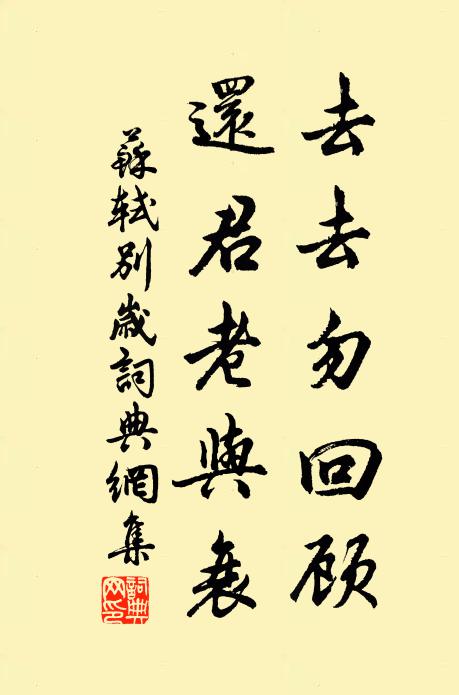 去去勿回顾
還君老與衰
蘇軾别歲詞典網集
詞典
网印